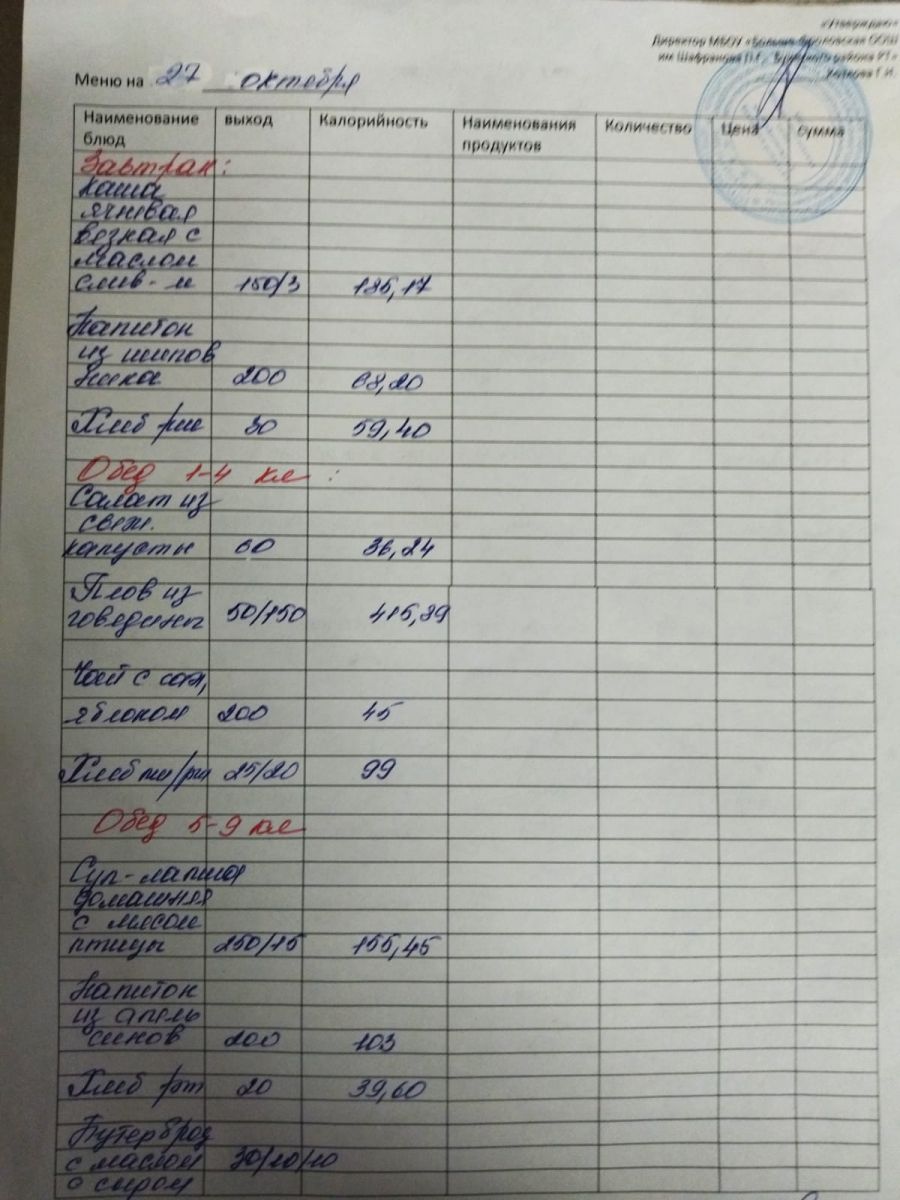 «Утверждаю»
Директор МБОУ «Больше-Фроловская ООШ
им Шафранова П.Г. Буинского района РТ»
Хоткова Г.И.
Меню на 27 октября
Наименование блюд выход Калорийность Наименования продуктов Количество Цена Сумма
Завтрак:
каша
ячневая
вязкая с
маслом
слив-м 150/3 185,17
Напиток
из шипов
ника 200 68,20
Хлеб рж 30 59,40
Обед 1-4 кл :
Салат из
свеж.
капусты 60 36,24
Плов из
говядины 50/150 415,89
Чай с сах,
яблоком 200 45
Хлеб пш/рж 25/20 99
Обед 5-9 кл
Суп-лапша
домашняя
с мясом
птицы 250/15 155,45
Напиток
из апель
синов 200 103
Хлеб рж 20 39,60
Бутерброд
с маслом 30/10/10
с сыром